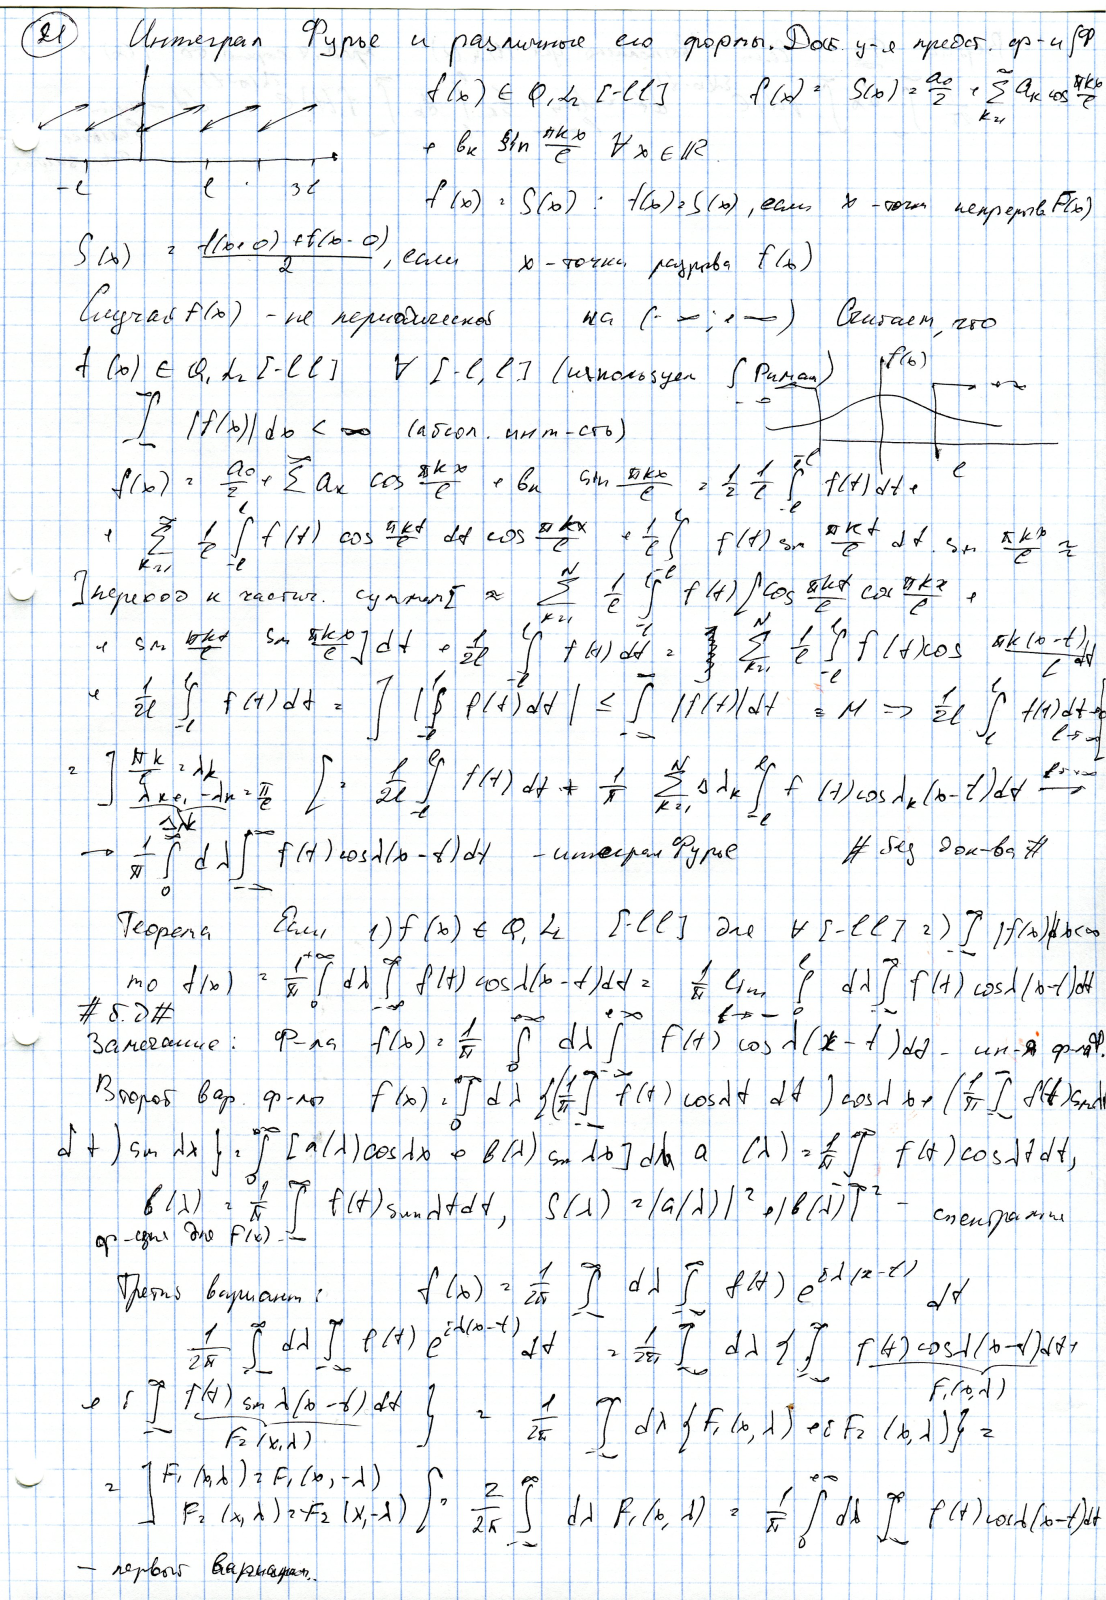 21 Интеграл Фурье и различные его формы. Дост. у-я предст. ф-и ∫Ф
f(x) ∈ Q, L₂ [-l l] f(x) = S(x) = a₀/2 + ∑_{k=1}^{∞} aₖ cos πkx/l
+ bₖ sin πkx/l ∀ x ∈ R.
-l l 3l
f(x) = S(x) : f(x) = S(x), если x - точка непрерыв F(x)
S(x) = (f(x+0) + f(x-0))/2, если x - точка разрыва f(x)
Случай f(x) - не периодической на (-∞; +∞) Считаем, что
f(x) ∈ Q, L₂ [-l l] ∀ [-l, l] (используем ∫ Риман) f(x)
∫_{-∞}^{∞} |f(x)| dx < ∞ (абсол. инт-сть) l
f(x) = a₀/2 + ∑^{∞} aₖ cos πkx/l + bₖ sin πkx/l = 1/2 1/l ∫_{-l}^{l} f(t) dt +
+ ∑_{k=1}^{∞} 1/l ∫_{-l}^{l} f(t) cos πkt/l dt cos πkx/l + 1/l ∫_{-l}^{l} f(t) sin πkt/l dt. sin πkx/l =
] переход к частич. суммам [ ≈ ∑_{k=1}^{N} 1/l ∫_{-l}^{l} f(t) [cos πkt/l cos πkx/l +
+ sin πkt/l sin πkx/l] dt + 1/2l ∫_{-l}^{l} f(t) dt = ∑_{k=1}^{N} 1/l ∫_{-l}^{l} f(t) cos πk(x-t)/l dt
+ 1/2l ∫_{-l}^{l} f(t) dt = ] |∫_{-l}^{l} f(t) dt| ≤ ∫_{-∞}^{∞} |f(t)| dt = M => 1/2l ∫_{-l}^{l} f(t) dt → 0 l→∞ [
= ] πk/l = λk λk+1 - λk = π/l Δλk [ = 1/2l ∫_{-l}^{l} f(t) dt + 1/π ∑_{k=1}^{N} Δλₖ ∫_{-l}^{l} f(t) cos λₖ(x-t) dt l→+∞ →
→ 1/π ∫_{0}^{∞} dλ ∫_{-∞}^{∞} f(t) cos λ(x-t) dt - интеграл Фурье # без док-ва #
Теорема Если 1) f(x) ∈ Q, L₂ [-l l] для ∀ [-l l] 2) ∫_{-∞}^{∞} |f(x)| dx < ∞
то f(x) = 1/π ∫_{0}^{+∞} dλ ∫_{-∞}^{∞} f(t) cos λ(x-t) dt = 1/π lim_{l→∞} ∫_{0}^{l} dλ ∫_{-∞}^{∞} f(t) cos λ(x-t) dt
# б.д #
Замечание: Ф-ла f(x) = 1/π ∫_{0}^{+∞} dλ ∫_{-∞}^{+∞} f(t) cos λ(x-t) dt - ин-я ф-ла Ф.
Второй вар. ф-лы f(x) = ∫_{0}^{∞} dλ {(1/π ∫_{-∞}^{∞} f(t) cos λt dt) cos λx + (1/π ∫_{-∞}^{∞} f(t) sin λt
dt) sin λx} = ∫_{0}^{∞} [a(λ) cos λx + b(λ) sin λx] dλ a(λ) = 1/π ∫_{-∞}^{∞} f(t) cos λt dt,
b(λ) = 1/π ∫_{-∞}^{∞} f(t) sin λt dt, S(λ) = |a(λ)|² + |b(λ)|² -
ф-ция для F(x)
Третий вариант: f(x) = 1/2π ∫_{-∞}^{∞} dλ ∫_{-∞}^{∞} f(t) e^{iλ(x-t)} dt
1/2π ∫_{-∞}^{∞} dλ ∫_{-∞}^{∞} f(t) e^{iλ(x-t)} dt = 1/2π ∫_{-∞}^{∞} dλ { ∫_{-∞}^{∞} f(t) cos λ(x-t) dt + F₁(x,λ)
+ i ∫_{-∞}^{∞} f(t) sin λ(x-t) dt F₂(x,λ) } = 1/2π ∫_{-∞}^{∞} dλ {F₁(x,λ) + i F₂(x,λ)} =
= ] F₁(x,λ) = F₁(x,-λ) F₂(x,λ) = -F₂(x,-λ) [ = 2/2π ∫_{-∞}^{∞} dλ F₁(x,λ) = 1/π ∫_{0}^{+∞} dλ ∫_{-∞}^{∞} f(t) cos λ(x-t) dt
- первый вариант.